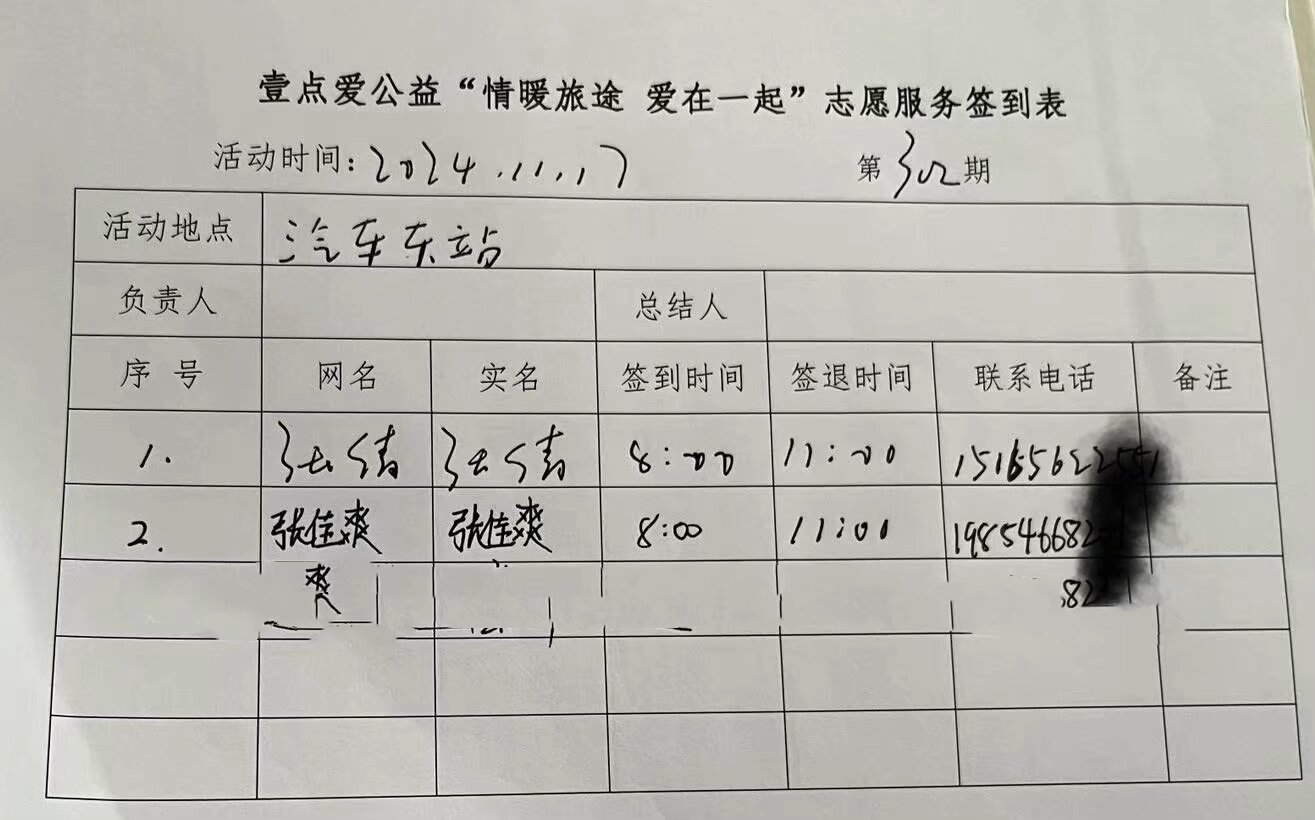 壹点爱公益“情暖旅途 爱在一起”志愿服务签到表
活动时间: 2024.11.17 第 期
活动地点 汽车东站
负责人 总结人
序号 网名 实名 签到时间 签退时间 联系电话 备注
1. 张倩 张倩 8:00 11:00
2. 张佳爽 张佳爽 8:00 11:00
爽